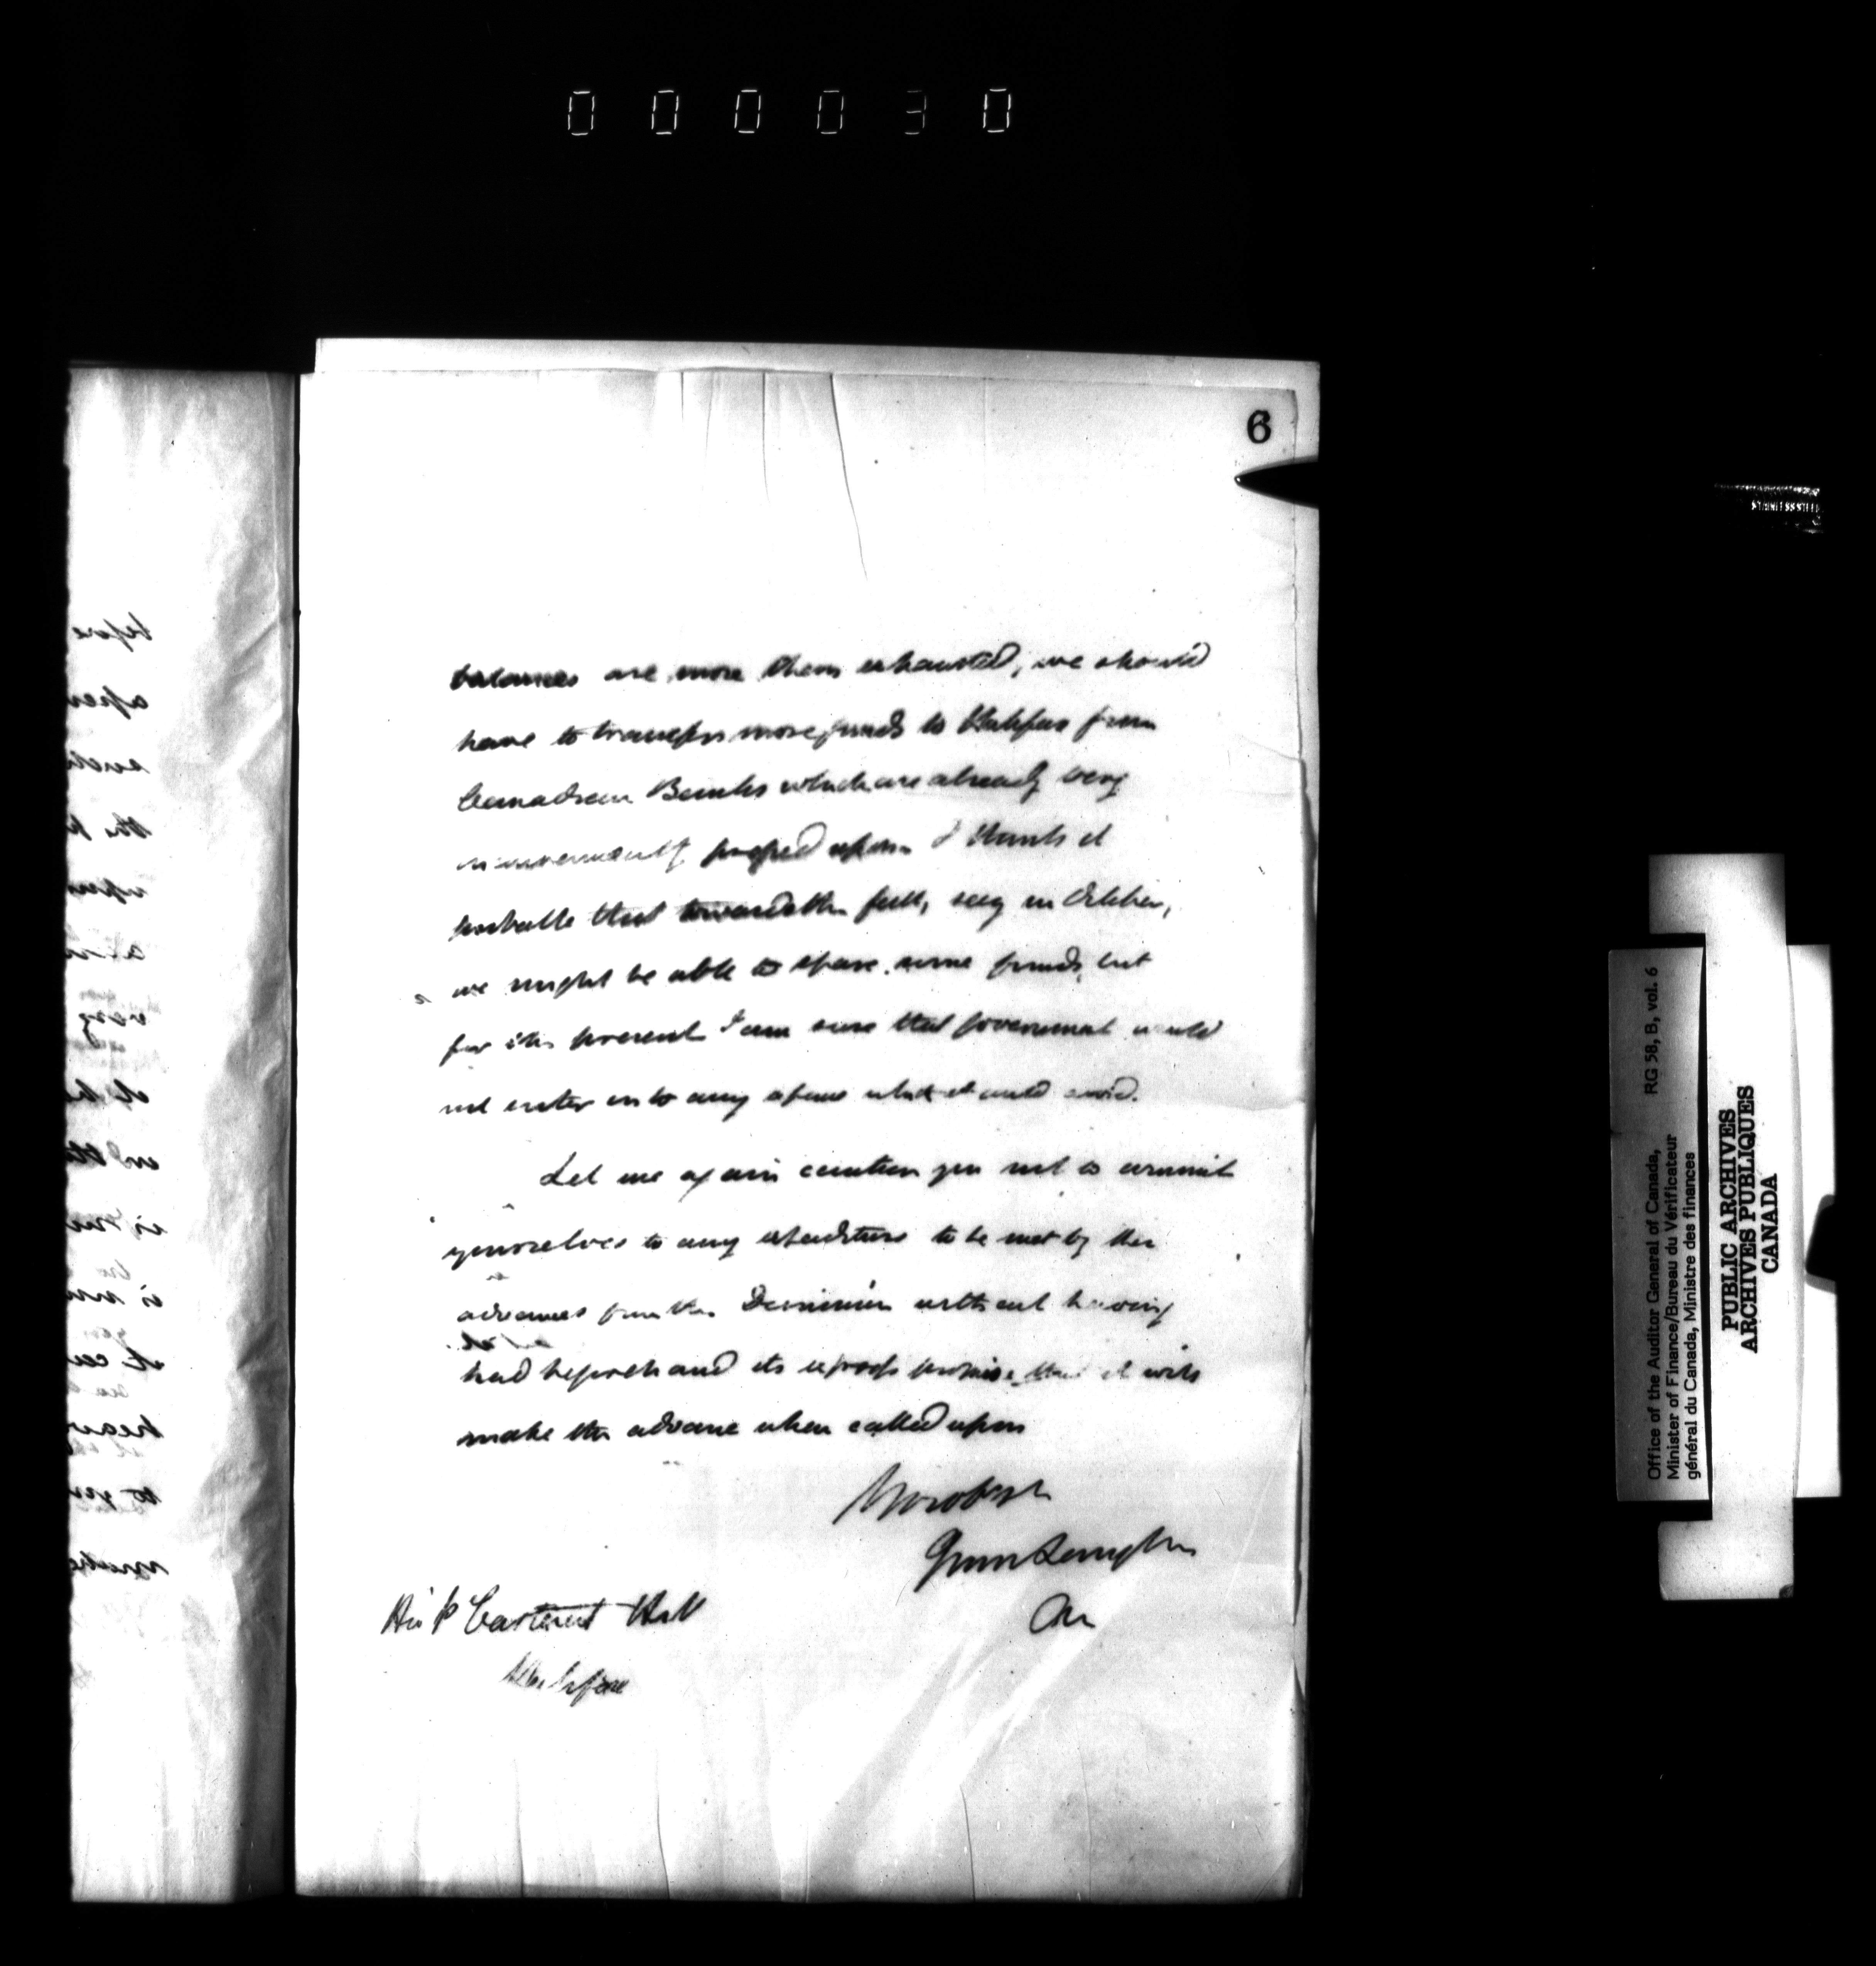 000030
6
balances are more than exhausted, we should
have to transfer more funds to Halifax from
Canadian Banks which are already very
pressed upon. I think it
probable that towards the fall, say in October,
we might be able to spare some funds, but
for the present I am sure that Government would
not enter into any which it could avoid.
Let me again caution you not to commit
yourselves to any expenditure to be met by the
advances from the Dominion without having
had beforehand its express promise that it will
make the advance when called upon
John Langton
Aud
Hill
Halifax
before
the
very
is
it
make
Office of the Auditor General of Canada,
Minister of Finance/Bureau du Vérificateur
général du Canada, Ministre des finances
RG 58, B, vol. 6
PUBLIC ARCHIVES
ARCHIVES PUBLIQUES
CANADA